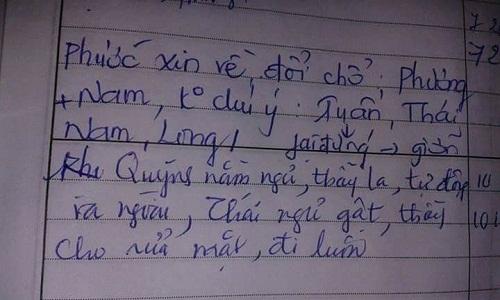 72
Phước xin về, đổi chỗ: Phương 72
+ Nam, ko chú ý: Tuấn, Thái
Nam, Long,
khi Quỳnh nằm ngủ, thầy la, tự đập 10
ra ngoài, Thái ngủ gật, thầy 101
cho rửa mặt, đi luôn